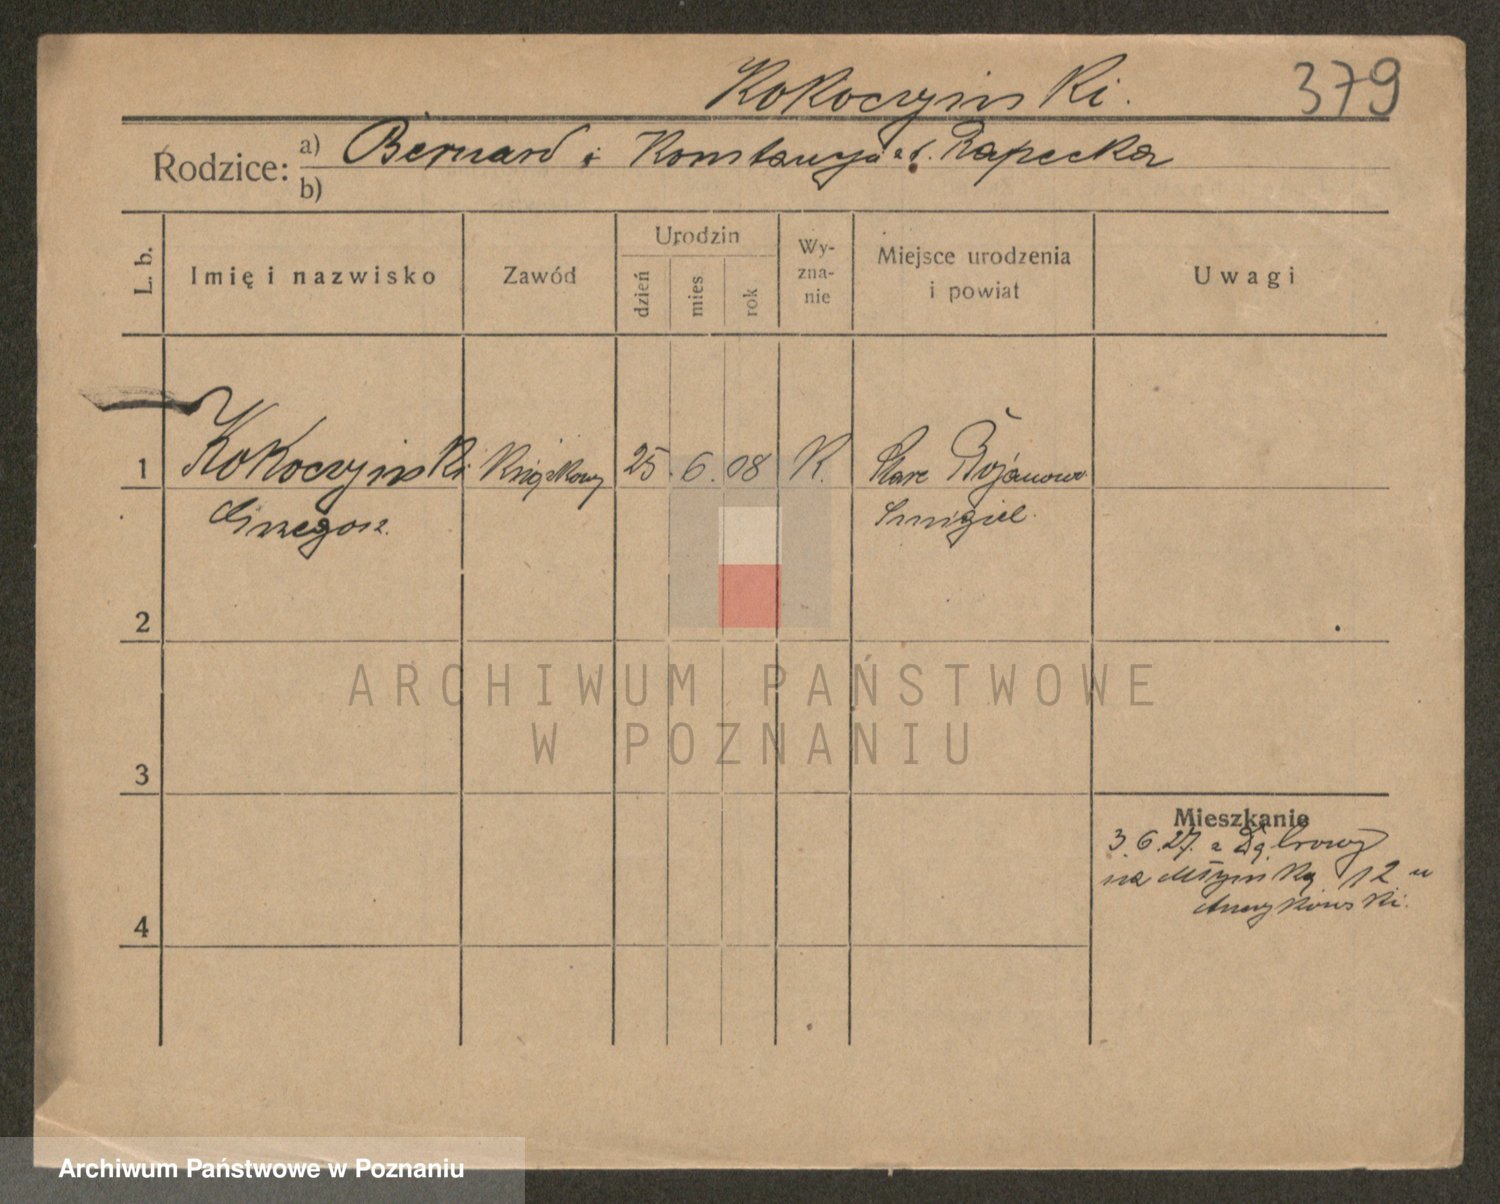 Kokoczyński.
379
Rodzice: a) Bernard i Konstancja z d. Rapecka
b)
L. b.
Imię i nazwisko
Zawód
Urodzin
dzień
mies
rok
Wy-
zna-
nie
Miejsce urodzenia
i powiat
Uwagi
1 Kokoczyński 25. 6. 08 K. Stare Bojanowo
Grzegorz. Śmigiel.
2
3
Mieszkanie
3.6.27. z
na Młyńską 12 u
4
ARCHIWUM PAŃSTWOWE
W POZNANIU
Archiwum Państwowe w Poznaniu